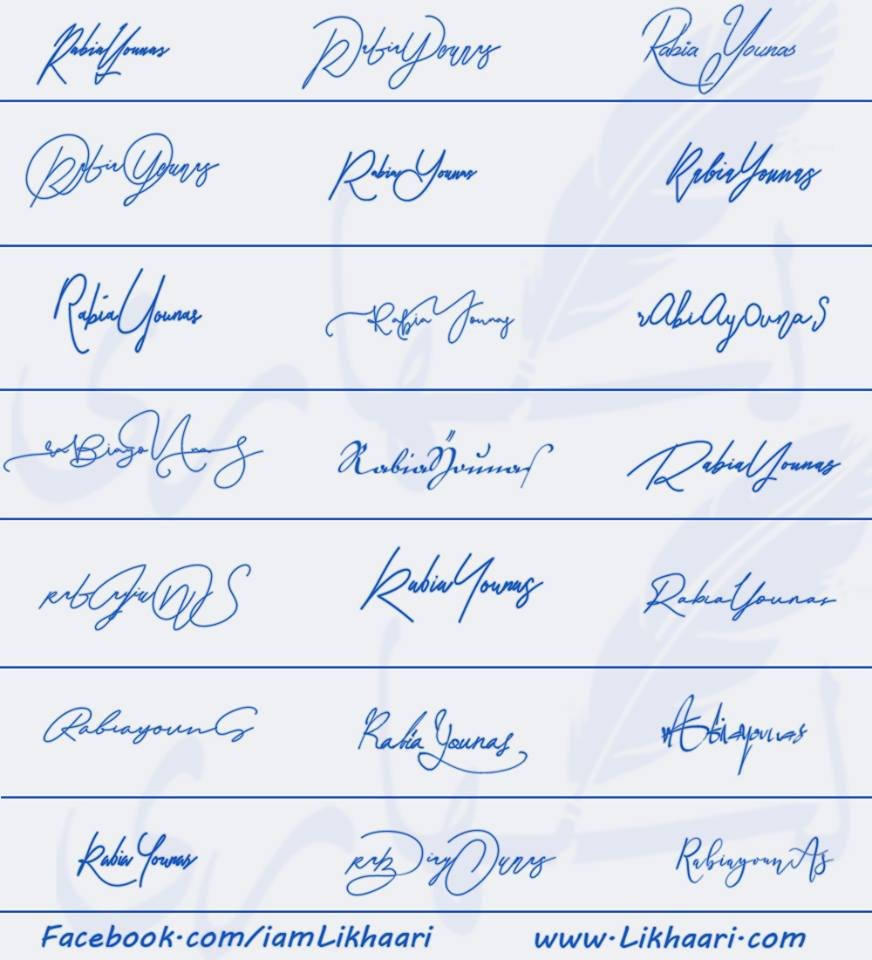 RabiaYounas RabiaYounas Rabia Younas
RabiaYounas RabiaYounas RabiaYounas
RabiaYounas RabiaYounas rAbiAyOunaS
raBiayoUnaS RabiaYounas RabiaYounas
rabAyiaONS RabiaYounas RabiaYounas
RabiayounaS Rabia Younas rAbiayounas
Rabia Younas rabDiayOunas RabiayounAs
Facebook.com/iamLikhaari www.Likhaari.com